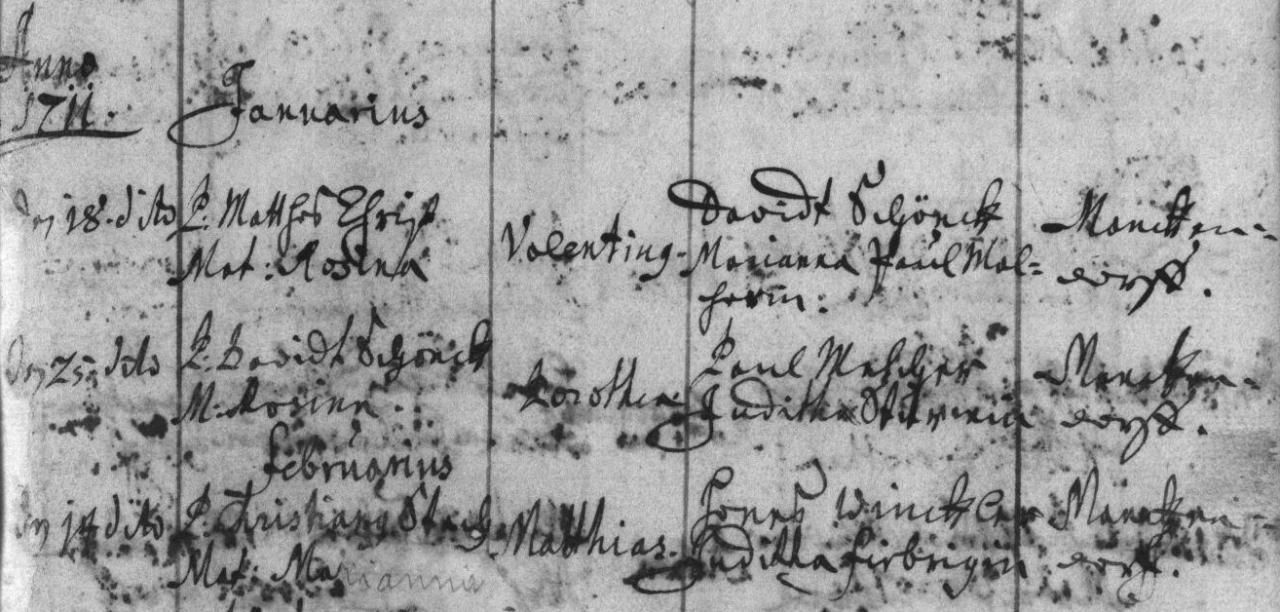 Anno
1711.
Januarius
den 18. dito P. Matthes Christ
Mat: Rosina
Valentinus.
Davidt Schönck
Marianna Paul Mal=
herin:
Marcken-
dorff.
den 25. dito P. Davidt Schönck
M. Rosina.
Dorothea
Paul Melcher
Juditha
Marcken-
dorff.
Februarius
den 14 dito P. Christianus
Mat: Marianna
Matthias.
Winckler
Juditha
Marcken-
dorff.